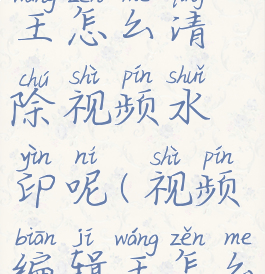 wáng zěn me qīng
王怎么清
chú shì pín shuǐ
除视频水
yìn ní shì pín
印呢(视频
biān jí wáng zěn me
编辑王怎么